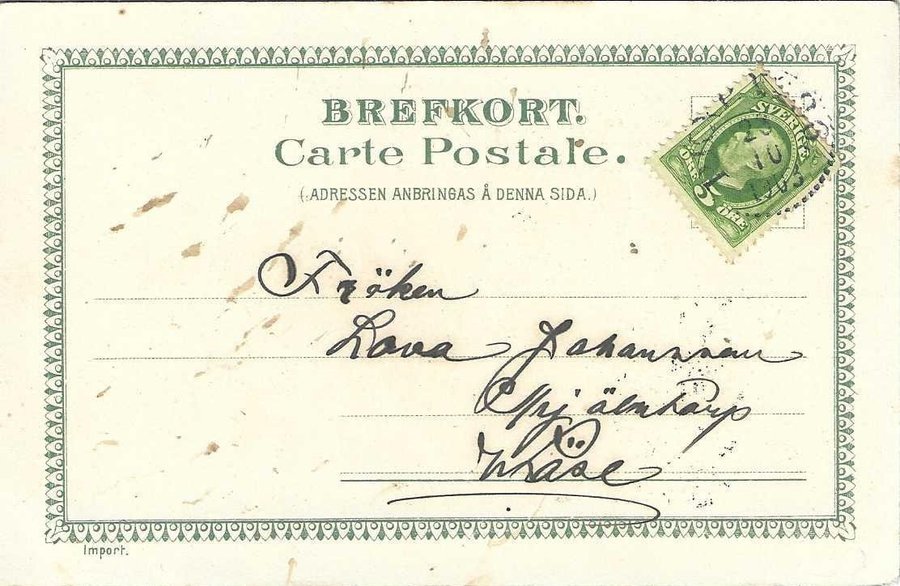 BREFKORT.
Carte Postale.
(:ADRESSEN ANBRINGAS Å DENNA SIDA.)
SVERIGE
5 ÖRE
10
1903
Fröken
Lova Johansson
Wäse
Import.